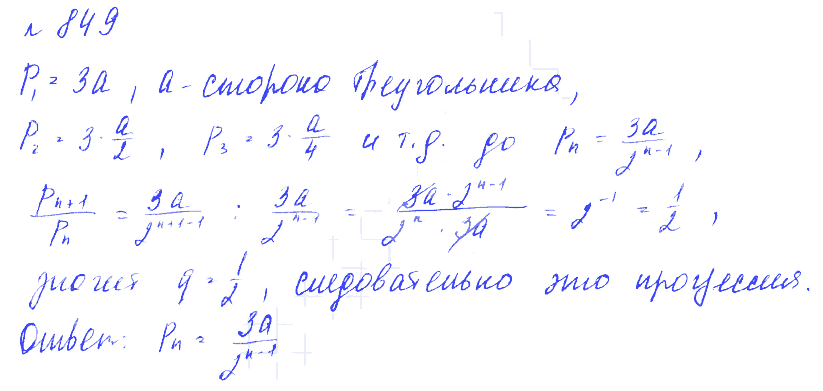 № 849
P₁ = 3a, a - сторона треугольника,
P₂ = 3 · a/2, P₃ = 3 · a/4 и т.д. до Pₙ = 3a/2ⁿ⁻¹,
Pₙ₊₁/Pₙ = 3a/2ⁿ⁺¹⁻¹ : 3a/2ⁿ⁻¹ = 3a · 2ⁿ⁻¹/2ⁿ · 3a = 2⁻¹ = 1/2,
значит q = 1/2, следовательно это прогрессия.
Ответ: Pₙ = 3a/2ⁿ⁻¹